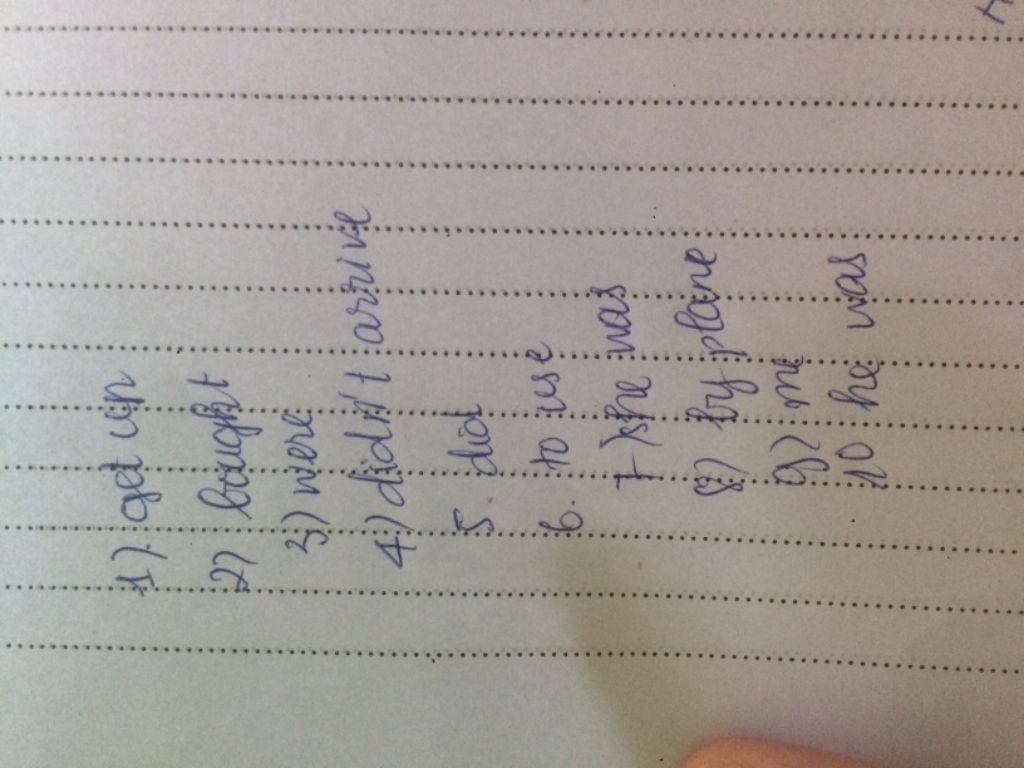 1). get up
2) bought
3) were
4) didn't arrive
5. did
6. to use
7) she was
8) by plane
9) me
10 he was